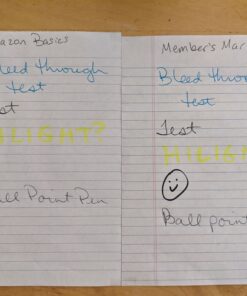 azon Basics
leed through
test
st
HLIGHT?
all Point Pen
Member's Mar
Bleed through
test
Test
HILIGHT
Ball point